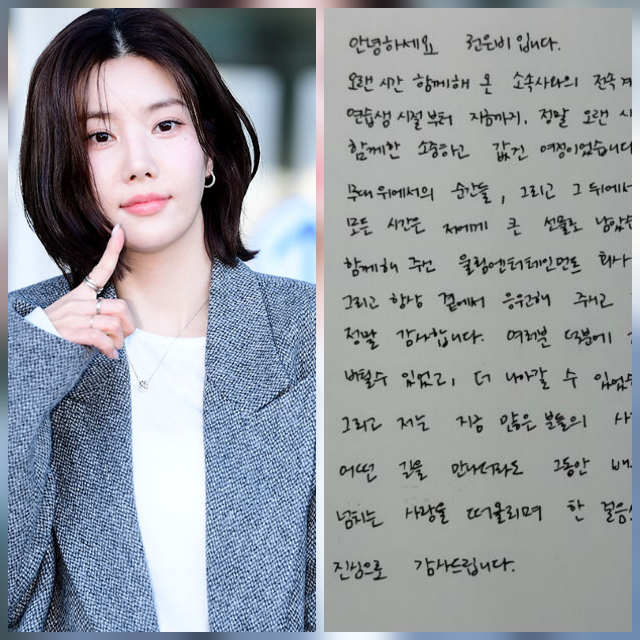 안녕하세요 권은비 입니다.
오랜 시간 함께해 온 소속사와의 전속 계
연습생 시절부터 지금까지, 정말 오랜 시
함께한 소중하고 값진 여정이었습니다
무대 위에서의 순간들, 그리고 그 뒤에서
모든 시간은 저에게 큰 선물로 남았
함께해 주신 울림엔터테인먼트 회사
그리고 항상 곁에서 응원해 주시고
정말 감사합니다. 여러분 덕분에
버틸수 있었고, 더 나아갈 수 있었
그리고 저는 지금 많은 분들의 사
어떤 길을 만나더라도 그동안 배
넘치는 사랑을 떠올리며 한 걸음
진심으로 감사드립니다.